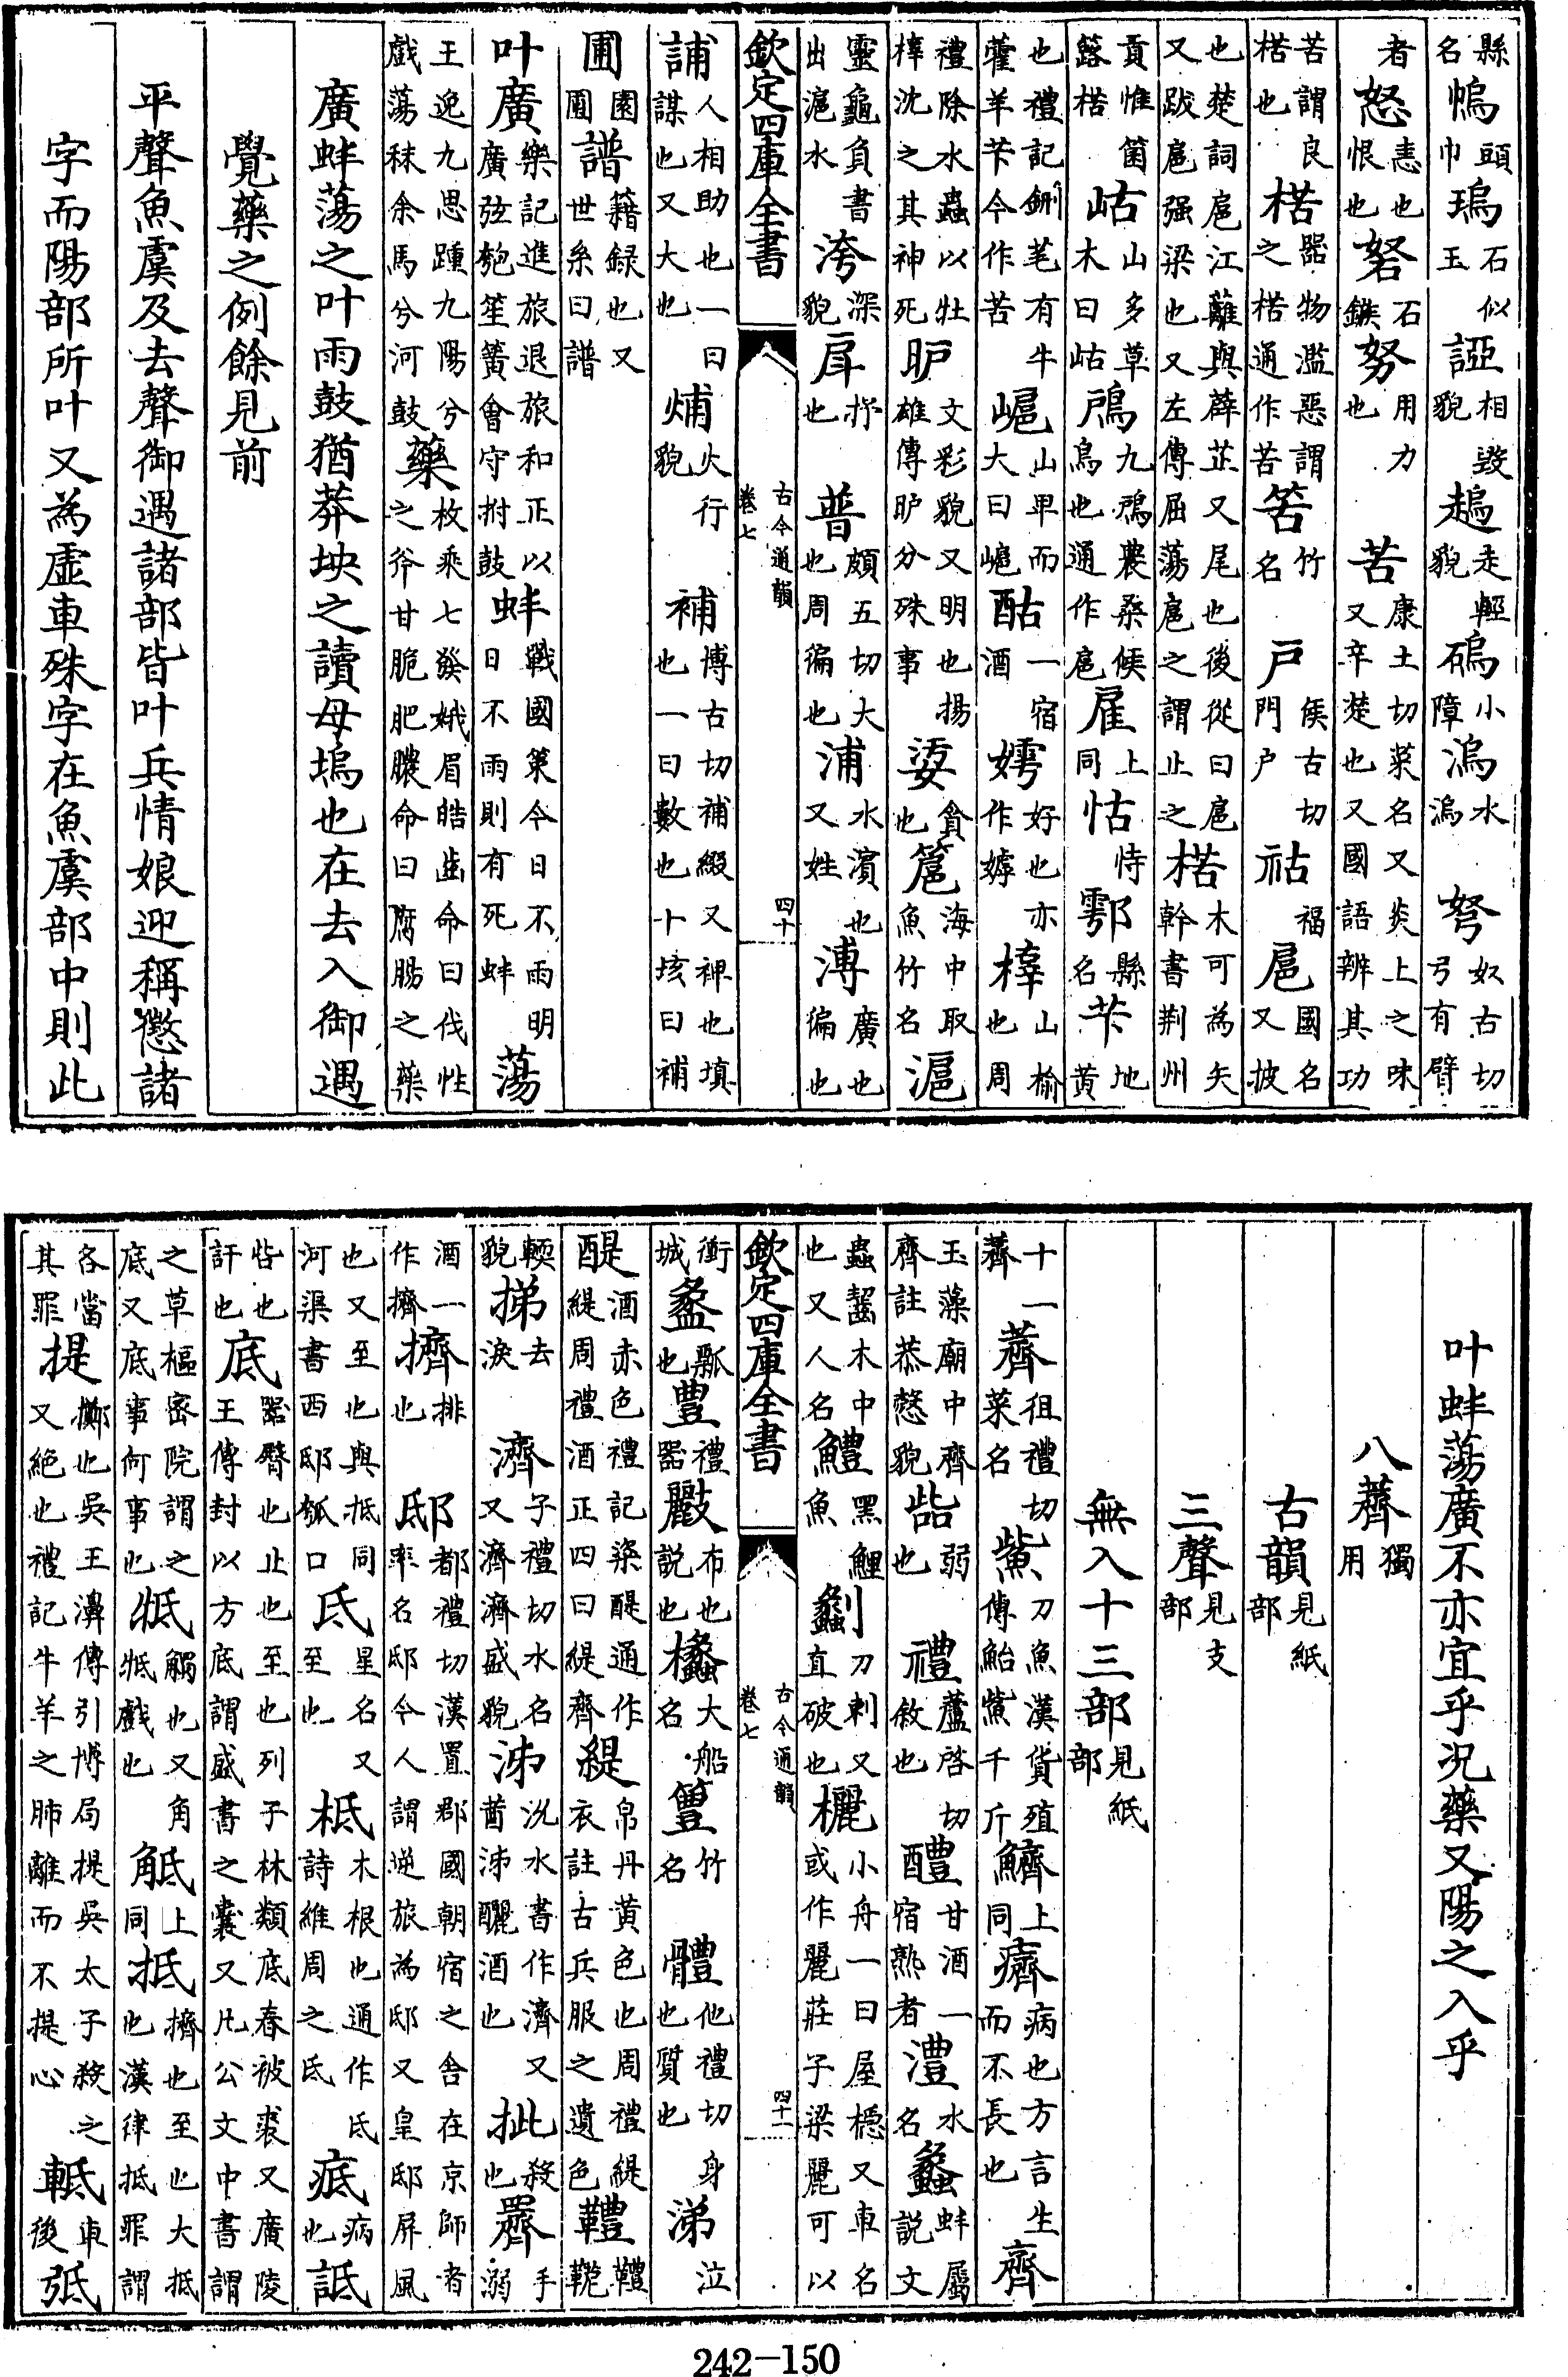 縣名㡔頭巾瑦石似玉誈相毁貌走輕貌小障溩水溩弩奴古切弓有臂
者怒恚也恨也砮石鏃努用力也苦康土切菜名又炎上之味又辛楚也又國語辨其功
苦謂良楛也楛器物濫惡謂之楛通作苦筶竹名戸侯古切門户祜福扈國名又披
也楚詞扈江蘺與薜芷又尾也後從曰扈又跋扈强梁也又左傳屈蕩扈之謂止之楛木可為矢幹書荆州
貢惟箘簵楛岵山多草木曰岵鳸九鳸農桑候鳥也通作扈雇上同怙恃鄠縣名芐地黄
也禮記鉶芼有牛藿羊芐今作苦㟓山卑而大曰㟓酤一宿酒嫮好也亦作嫭山榆也周
禮除水蟲以牡沈之其神死昈文彩貌又明也揚雄傳昈分殊事貪也簄海中取魚竹名滬
靈龜負書出滬水洿深貌戽抒也普頗五切大也周徧也浦水濱也又姓溥廣也徧也
欽定四庫全書 古今通韻卷七 四十
誧人相助也一曰謀也又大也火行貌補博古切補綴又裨也填也一曰數也十垓曰補
圃園圃譜籍録也又世系曰譜
叶廣樂記進旅退旅和正以廣弦匏笙簧會守拊鼓蚌戰國策今日不雨明日不雨則有死蚌蕩
王逸九思踵九陽兮戲蕩秣余馬兮河鼓藥枚乘七發娥眉皓齒命曰伐性之斧甘脆肥膿命曰腐腸之藥
廣蚌蕩之叶雨鼓猶莽坱之讀母塢也在去入御遇
覺藥之例餘見前
平聲魚虞及去聲御遇諸部皆叶兵情娘迎稱懲諸
字而陽部所叶又為虛車殊字在魚虞部中則此
叶蚌蕩廣不亦宜乎況藥又陽之入乎
八薺獨用
古韻見紙部
三聲見支部
無入十三部見紙部
十一薺薺徂禮切菜名鮆刀魚漢貨殖傳鮐鮆千斤鱭上同癠病也方言生而不長也齊
玉藻廟中齊齊註恭慤貌啙弱也禮蘆啓切敘也醴甘酒一宿熟者澧水名蠡蚌屬説文
蟲齧木中也又人名鱧黑鯉魚劙刀刺又直破也欐小舟一曰屋檼又車名或作麗莊子梁麗可以
欽定四庫全書 古今通韻卷七 四十一
衝城瓢也豊禮器布也説也欚大船名竹名體他禮切身也質也涕泣
醍酒赤色禮記粢醍通作緹周禮酒正四曰緹齊緹帛丹黄色也周禮緹衣註古兵服之遺色軆
輭貌挮去淚濟子禮切水名又濟濟盛貌泲沇水書作濟又茜泲釃酒也批殺也手
酒一作擠擠排也邸都禮切漢置郡國朝宿之舍在京師者率名邸今人謂逆旅為邸又皇邸屏風
也又至也與抵同河渠書西邸瓠口氐星名又至也柢木根也通作氐詩維周之氐疷病也詆
呰也訐也底器臀也止也至也列子林類底春被裘又廣陵王傳封以方底謂盛書之囊又凡公文中書謂
之草樞密院謂之底又底事何事也牴觸也又角牴戲也觝上同抵擠也至也大抵也漢律抵罪謂
各當其罪提擲也吳王濞傳引博局提吳太子殺之又絶也禮記牛羊之肺離而不提心軧車後弤
242-150